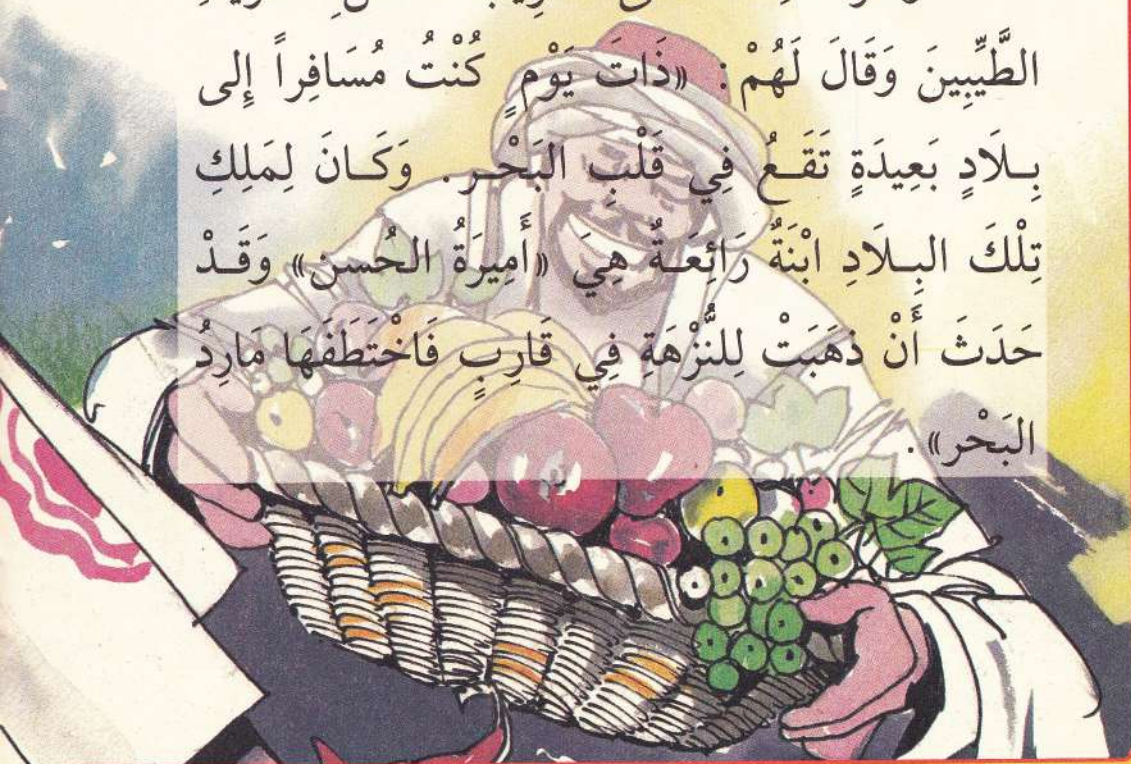 الطَّيِّبِينَ وَقَالَ لَهُمْ : «ذَاتَ يَوْمٍ كُنْتُ مُسَافِراً إِلى
بِـلَادٍ بَعِيدَةٍ تَقَـعُ فِي قَلْبِ البَحْـرِ. وَكَـانَ لِمَلِكِ
تِلْكَ البِـلَادِ ابْنَةٌ رَائِعَـةٌ هِيَ «أَمِيرَةُ الحُسن» وَقَـدْ
حَدَثَ أَنْ ذهَبَتْ لِلنُّزْهَةِ فِي قَارِبٍ فَاخْتَطَفَهَا مَارِدُ
البَحْر».